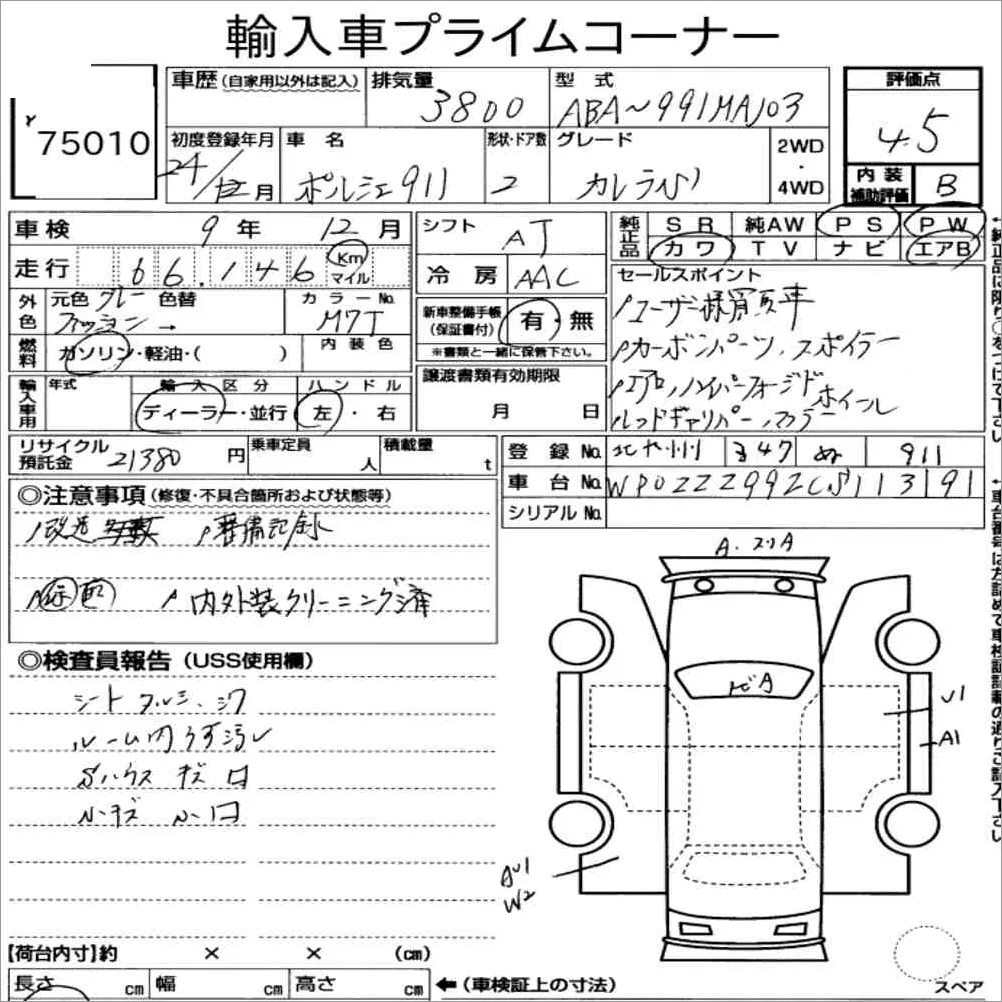 輸入車プライムコーナー
75010
車歴(自家用以外は記入)
排気量
3800
型式
ABA~991MAJ03
評価点
4.5
初度登録年月
24/12月
車名
ポルシェ911
形状・ドア数
2
グレード
カレラS
2WD
・
4WD
内装
補助評価
B
車検 9年 12月
走行 66,146 Km マイル
シフト
AT
冷房 AAC
純正品
SR 純AW PS PW
カワ TV ナビ エアB
外色
元色 グレー 色替
→
カラーNo.
M7T
燃料
ガソリン・軽油・( )
内装色
新車整備手帳
(保証書付)
有・無
※書類と一緒に保管下さい。
セールスポイント
ユーザー様買取車
カーボンパーツ、スポイラー
エアロ、ハイパーフォージドホイール
レッドキャリパー、マフラー
輸入車用
年式
輸入区分
ディーラー・並行
ハンドル
左・右
譲渡書類有効期限
月 日
リサイクル
預託金
21380円
乗車定員
人
積載量
t
登録No. 北九州 347 ぬ 911
車台No. WP0ZZZ99ZCS113191
シリアルNo.
◎注意事項(修復・不具合箇所および状態等)
改造多数 整備記録
内外装クリーニング済
◎検査員報告(USS使用欄)
シート スレ、シワ
ルーム内うす汚レ
A・スリA
トビA
U1
A1
AU1
W2
【荷台内寸】約 × × (cm)
長さ cm 幅 cm 高さ cm
←(車検証上の寸法)
スペア